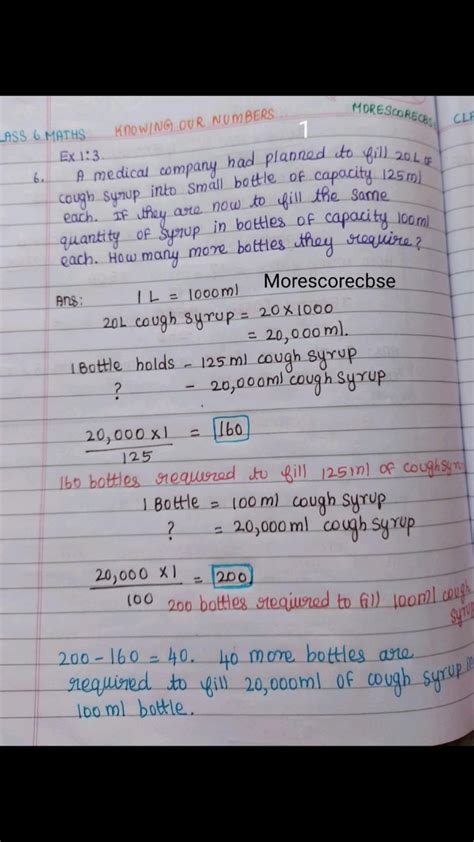 MORESCORECBS
CLA
ASS 6 MATHS KNOWING OUR NUMBERS
1
Ex 1:3
6. A medical company had planned to fill 20L of
cough syrup into small bottle of capacity 125ml
each. If they are now to fill the same
quantity of syrup in bottles of capacity 100ml
each. How many more bottles they require?
Morescorecbse
Ans: 1 L = 1000ml
20L cough syrup = 20 x 1000
= 20,000ml.
1 Bottle holds - 125ml cough syrup
? - 20,000ml cough syrup
20,000 x 1 = 160
125
160 bottles required to fill 125ml of cough syru
1 Bottle = 100ml cough syrup
? = 20,000ml cough syrup
20,000 x 1 = 200
100
200 bottles reqiured to fill 100ml cough
syru
200 - 160 = 40. 40 more bottles are
required to fill 20,000ml of cough syrup
100ml bottle.